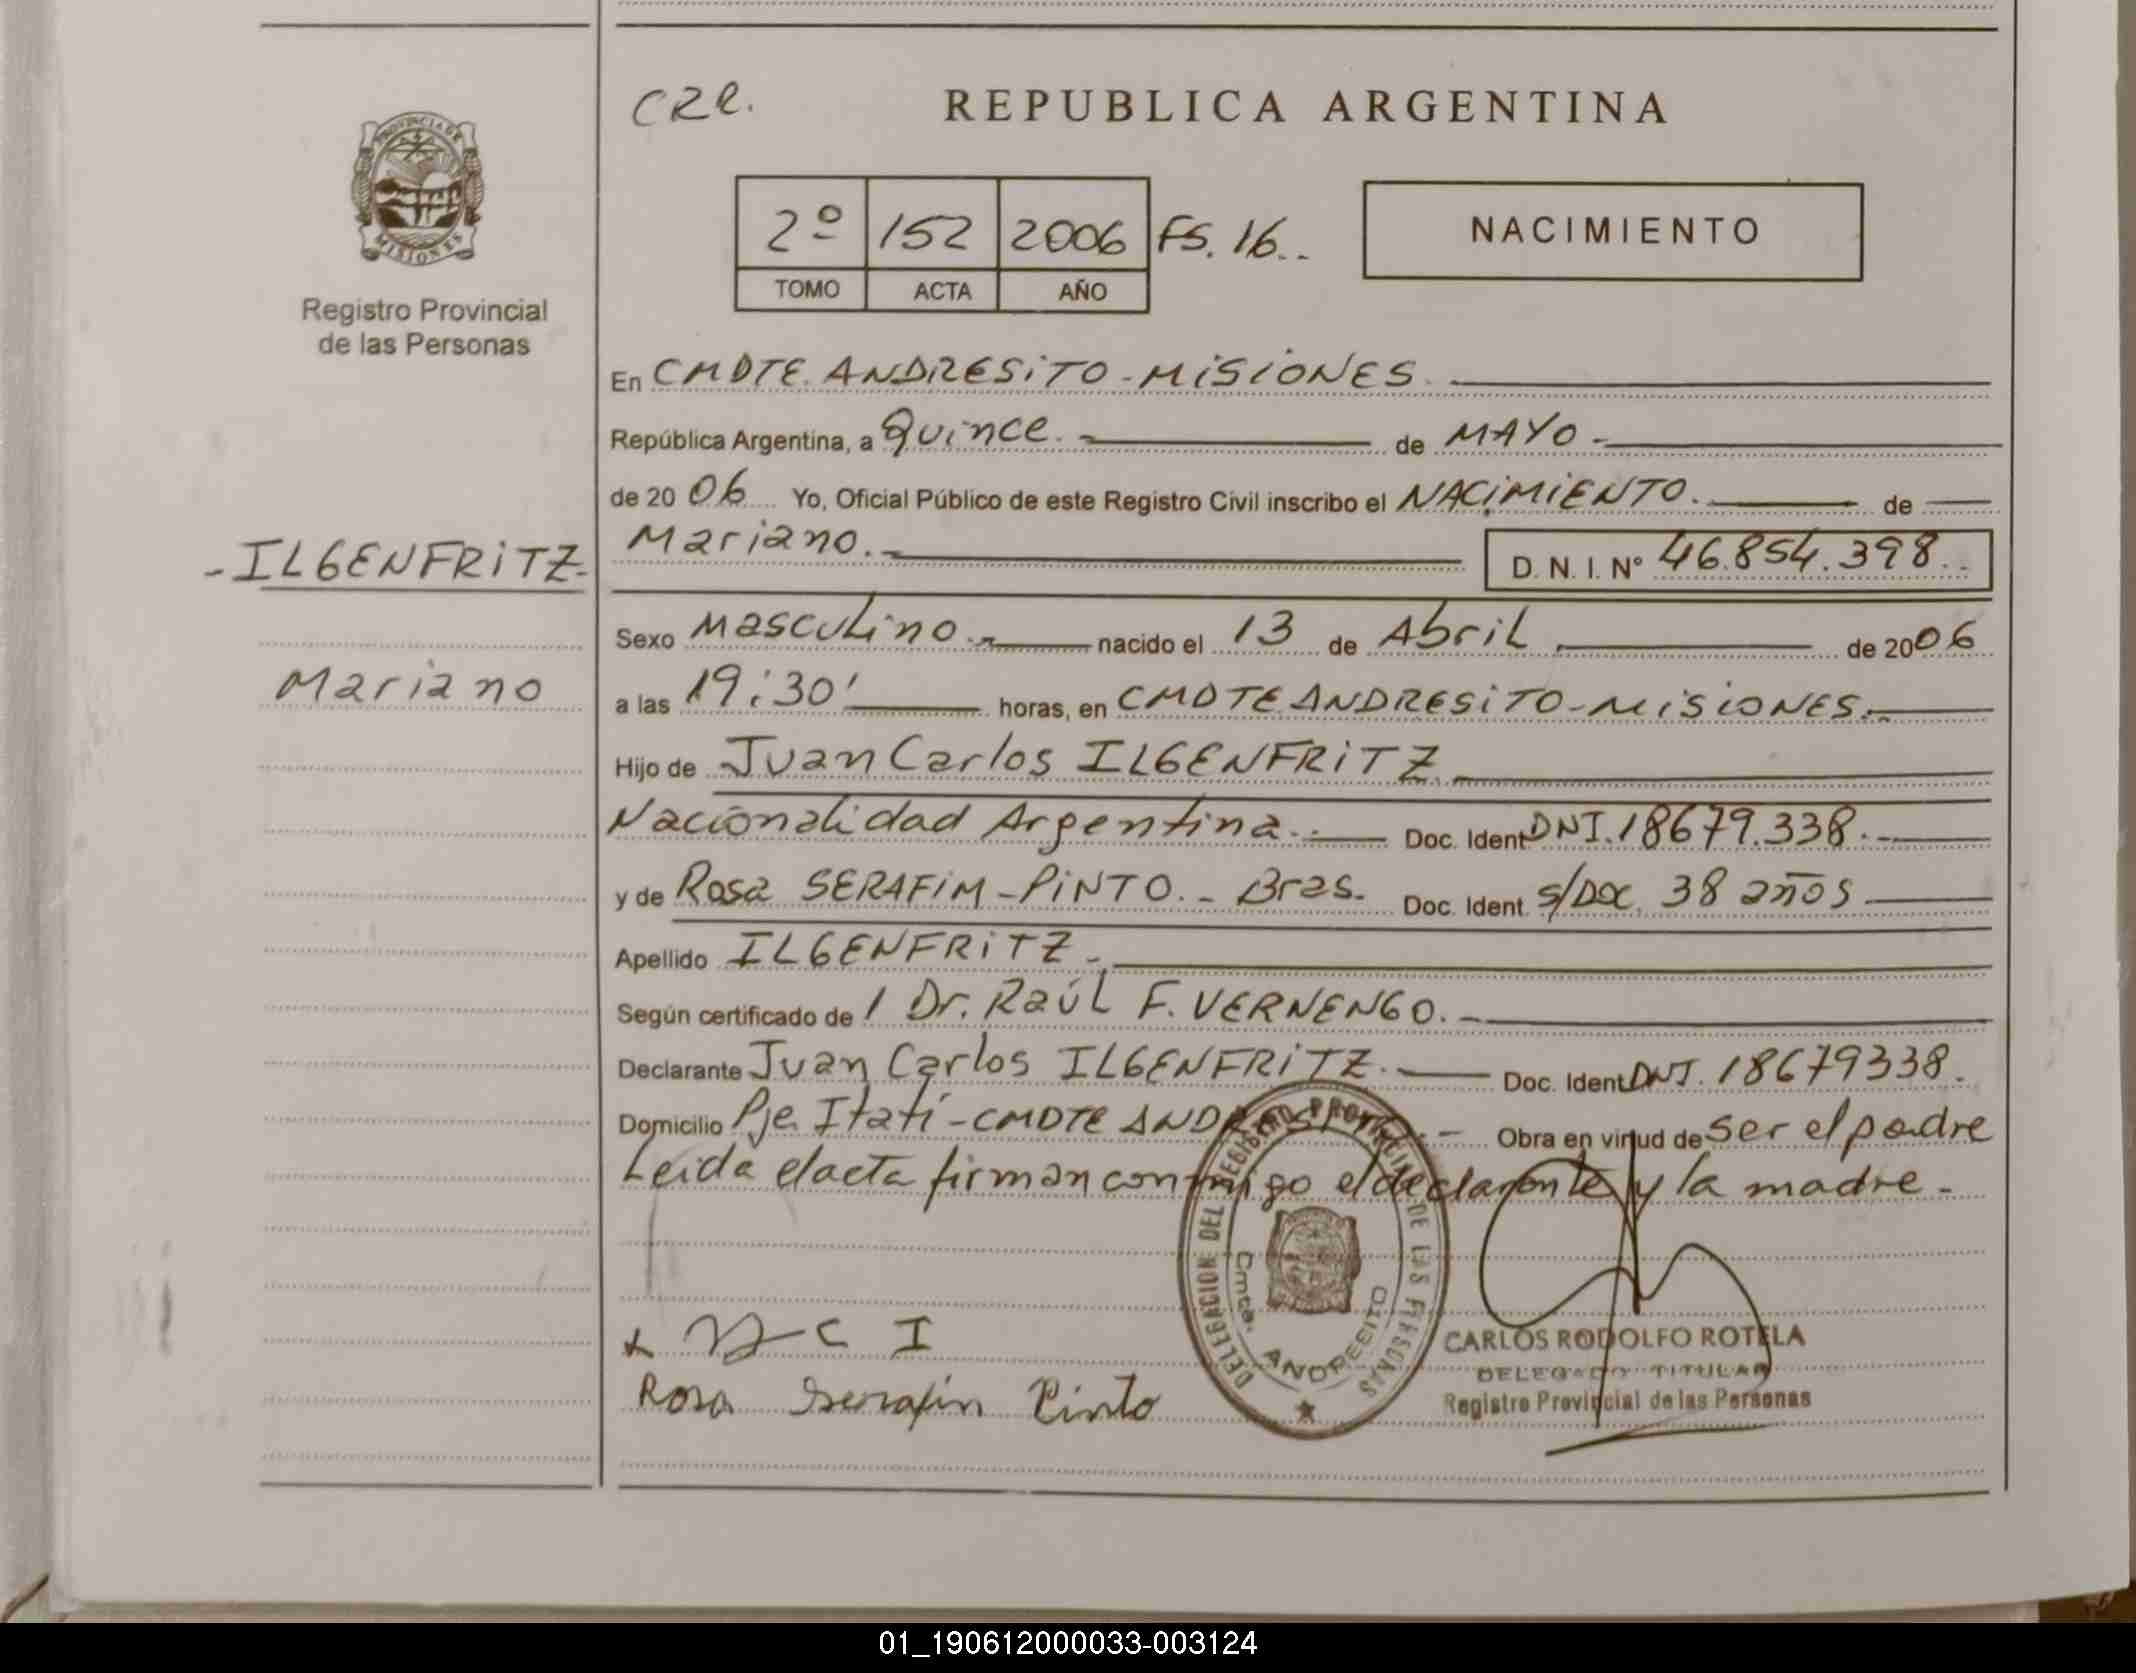 CRR.
REPUBLICA ARGENTINA
2º 152 2006 FS. 16..
TOMO ACTA AÑO
NACIMIENTO
PROVINCIA DE MISIONES
Registro Provincial
de las Personas
En CMDTE. ANDRESiTO - MiSiONES.
República Argentina, a Quince. de MAYO -
de 20 06 Yo, Oficial Público de este Registro Civil inscribo el NACiMiENTO. de
Mariano. D. N. I. Nº 46.854.398..
- ILGENFRiTZ -
Mariano
Sexo Masculino.- nacido el 13 de Abril de 2006
a las 19:30' horas, en CMDTE ANDRESiTO - MiSiONES.-
Hijo de Juan Carlos ILGENFRiTZ
Nacionalidad Argentina.- Doc. Ident DNI. 18679.338.-
y de Rosa SERAFiM - PiNTO. - Bras. Doc. Ident. S/DOC. 38 años
Apellido ILGENFRiTZ -
Según certificado de 1 Dr. Raúl F. VERNENGO. -
Declarante Juan Carlos ILGENFRiTZ. Doc. Ident DNI. 18679338.
Domicilio Pje. Itatí - CMDTE ANDRESITO. - Obra en virtud de ser el padre
Leida elacta firman conmigo el declarante y la madre -
C I
Rosa Serafin Pinto
DELEGACION DEL REGISTRO PROVINCIAL DE LAS PERSONAS
Cmte. ANDRESITO
CARLOS RODOLFO ROTELA
DELEGADO TITULAR
Registro Provincial de las Personas
01_190612000033-003124